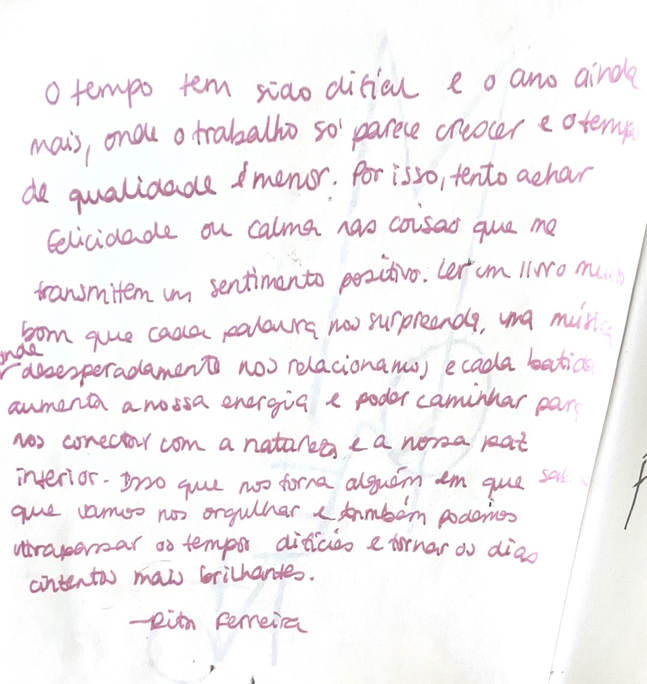 O tempo tem sido difícil e o ano ainda
mais, onde o trabalho só parece crescer e o tempo
de qualidade é menor. Por isso, tento achar
felicidade ou calma nas coisas que me
transmitem um sentimento positivo. Ler um livro muito
bom que cada palavra nos surpreende, uma música
onde desesperadamente nos relacionamos e cada batida
aumenta a nossa energia e poder caminhar para
nos conectar com a natureza e a nossa paz
interior. Isso que nos torna alguém em que
que vamos nos orgulhar e também podemos
utrapassar os tempos difícies e tornar os dias
cintentos mais brilhantes.
—Rita Ferreira